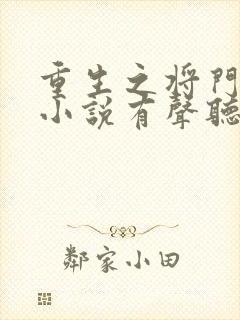 重生之将門
小說有聲聽
鄰家小田